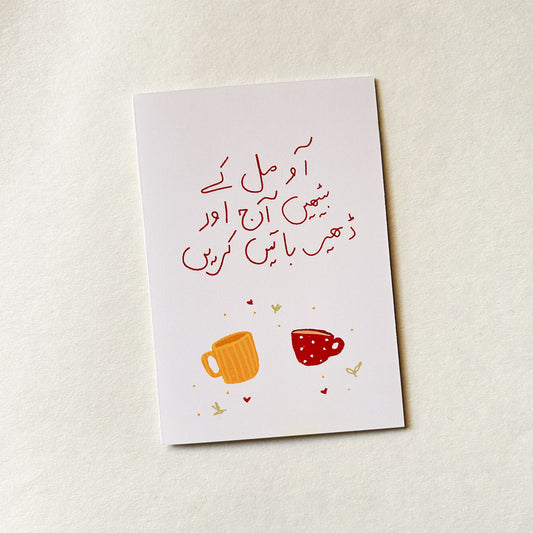 آو مل کے
بیٹھیں آج اور
ڈھیر باتیں کریں